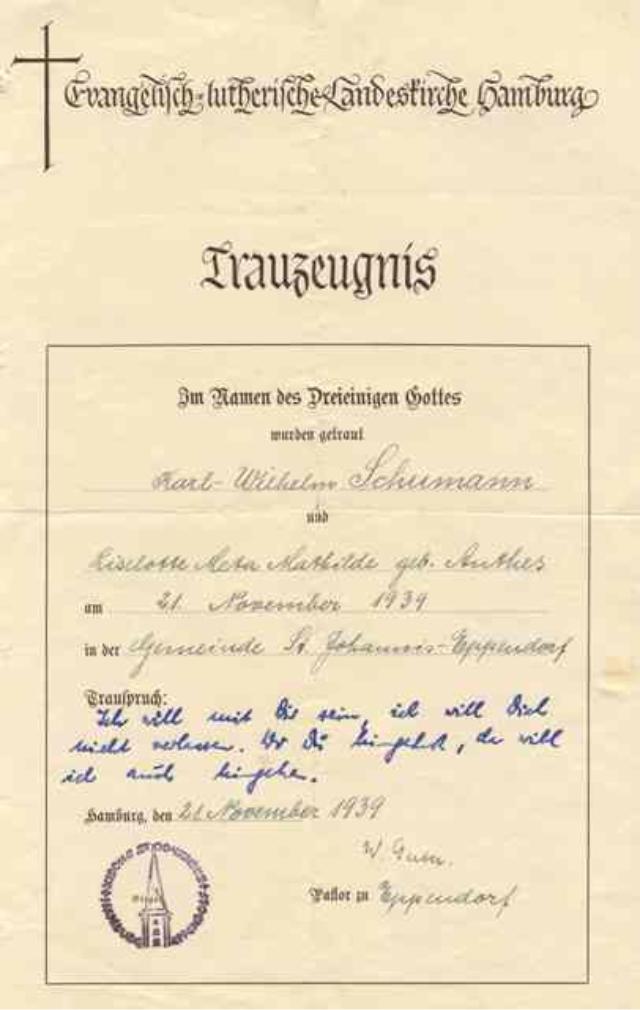 Evangelisch-lutherische Landeskirche Hamburg
Trauzeugnis
Im Namen des Dreieinigen Gottes
wurden getraut
Karl-Wilhelm Schumann
und
Liselotte Meta Mathilde geb. Anthes
am 21. November 1939
in der Gemeinde St. Johannis-Eppendorf
Trauspruch:
Ich will mit Dir sein, ich will Dich
nicht verlassen. Wo Du hingehst, da will
ich auch hingehen.
Hamburg, den 21. November 1939
W.
Pastor zu Eppendorf